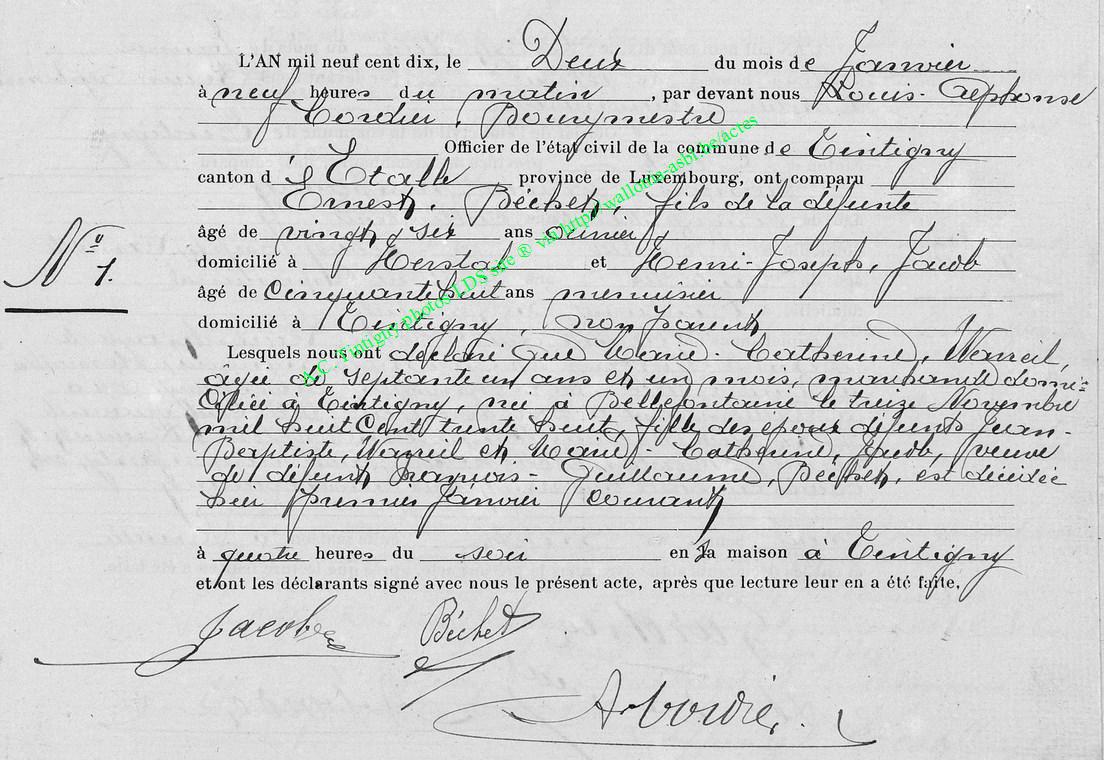 L'AN mil neuf cent dix, le Deux du mois de Janvier
à neuf heures du matin, par devant nous Louis-Alphonse
Cordier, Bourgmestre
Officier de l'état civil de la commune de Tintigny
canton d'Etalle province de Luxembourg, ont comparu
Ernest, Béchet, fils de la défunte
âgé de vingt six ans ouvrier
domicilié à Herstal et Henri-Joseph, Jacob
âgé de Cinquante huit ans menuisier
domicilié à Tintigny, non parent
Nº 1.
Lesquels nous ont déclaré que Marie-Catherine, Warreil,
âgée de septante un ans et un mois, marchande domi=
ciliée à Tintigny, née à Bellefontaine le treize Novembre
mil huit Cent trente huit, fille des époux défunts Jean-
Baptiste, Warreil et Marie-Catherine, Jacob, veuve
de défunt François Guillaume, Béchet, est décédée
hier premier Janvier courant
à quatre heures du soir en sa maison à Tintigny
et ont les déclarants signé avec nous le présent acte, après que lecture leur en a été faite.
Jacob Béchet
A Cordier
A.C. Tintigny photos LDS site ® via http://wallonia-asbl.be/actes